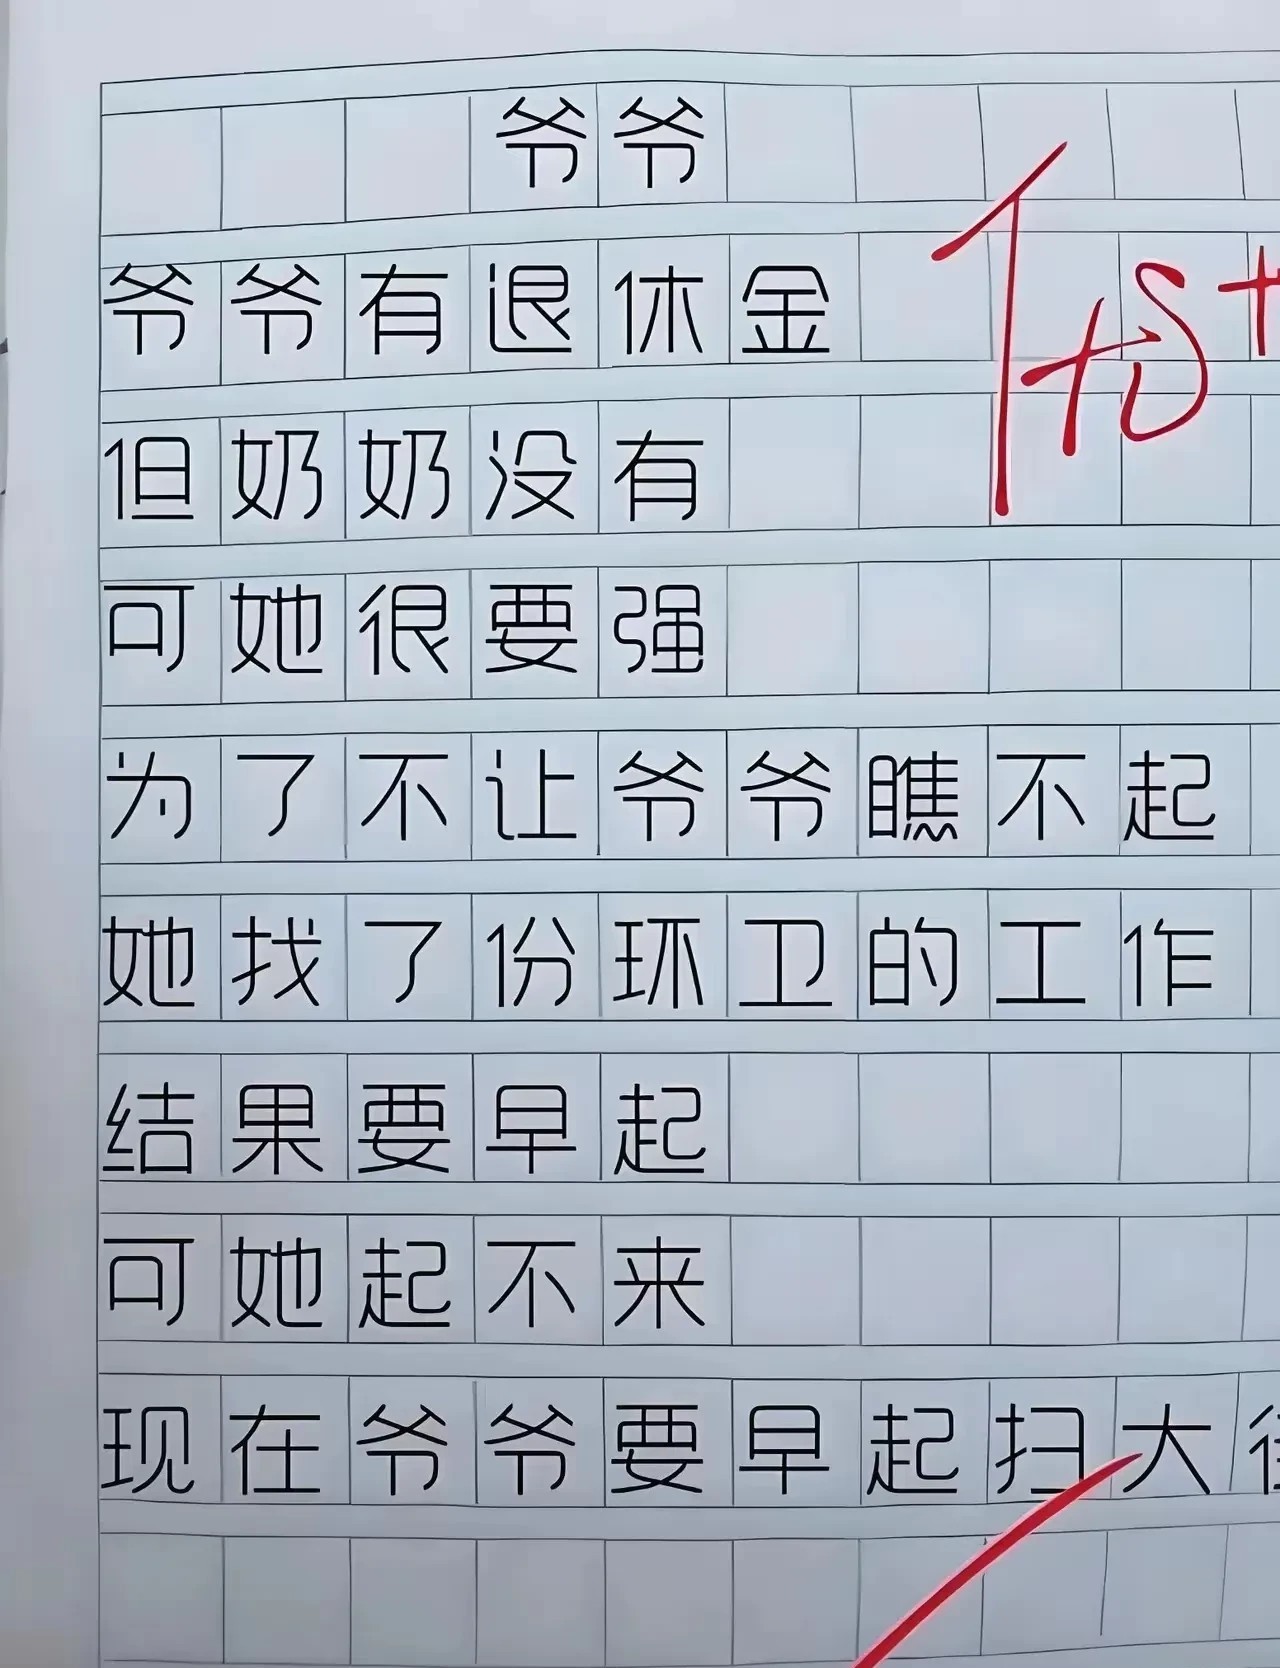 爷爷
爷爷有退休金
但奶奶没有
可她很要强
为了不让爷爷瞧不起
她找了份环卫的工作
结果要早起
可她起不来
现在爷爷要早起扫大